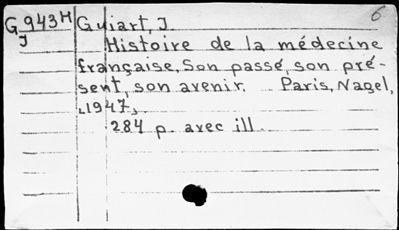 G943H Guiart, J. 6
J Histoire de la médecine
française. Son passé, son pré-
sent, son avenir. Paris, Nagel,
[1947].
284 p. avec ill.